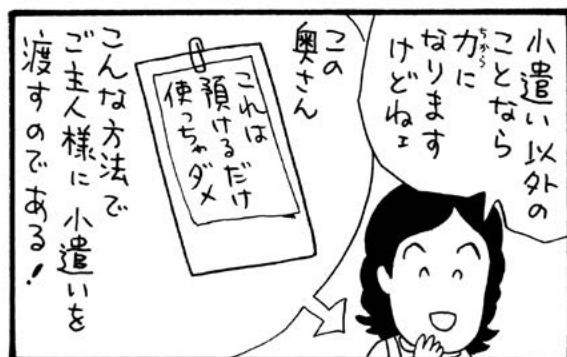 小遣い以外の
ことなら
力に
なります
けどねェ
この
奥さん
これは
預けるだけ
使っちゃダメ
こんな方法で
ご主人様に小遣いを
渡すのである!